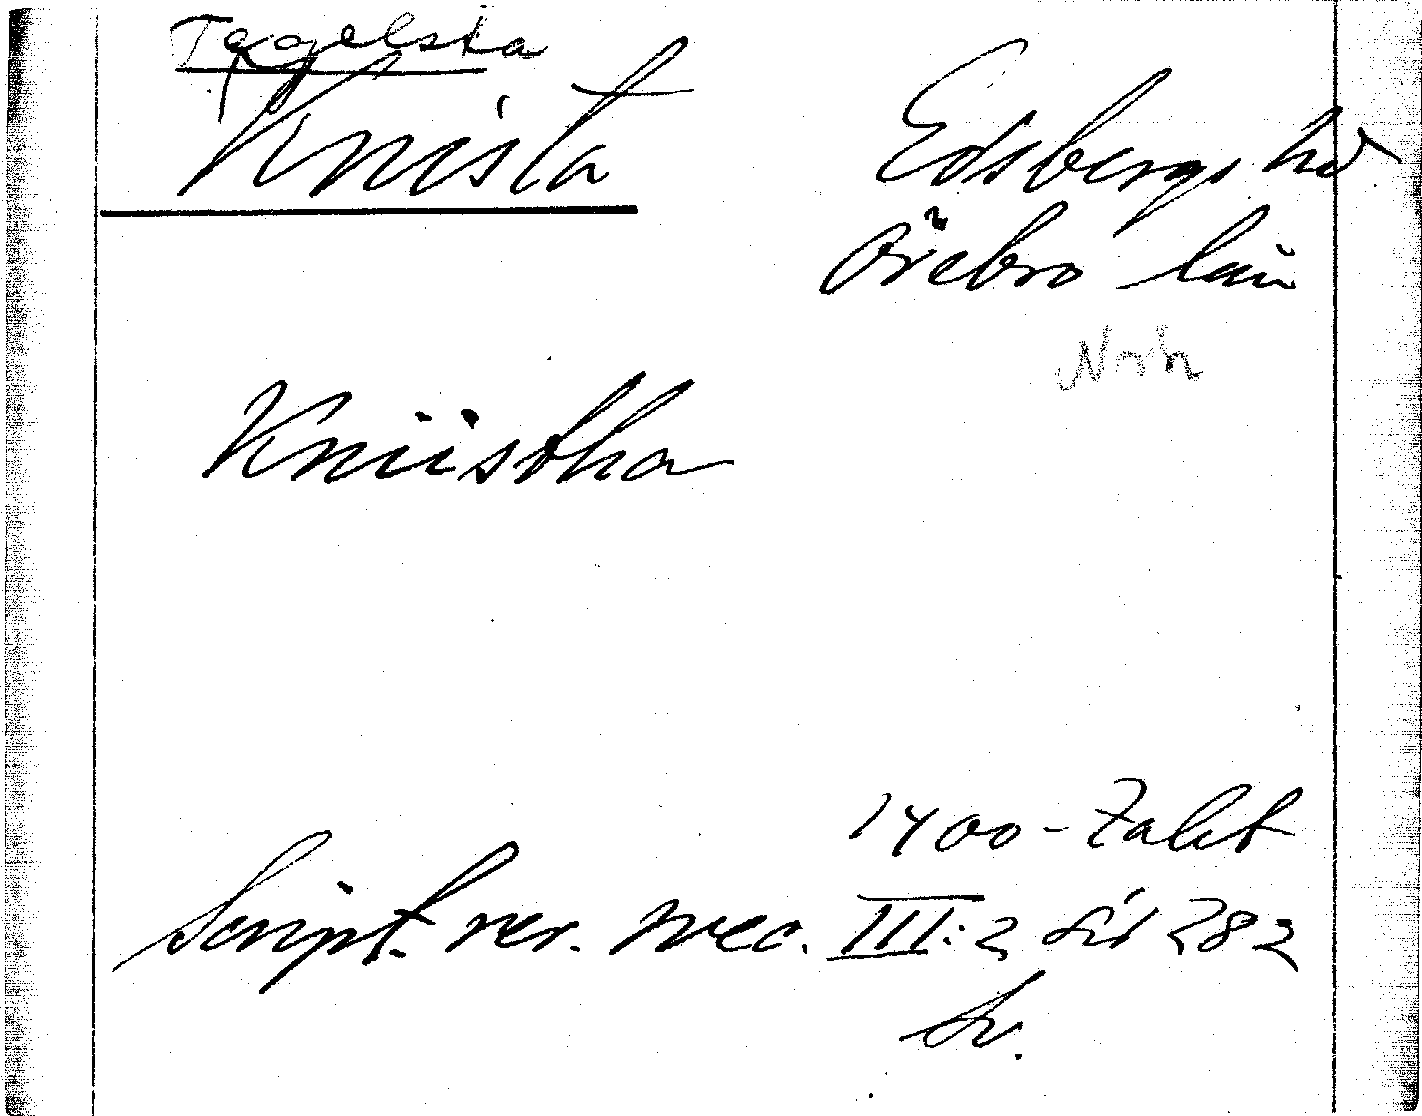 Tägelsta
Knista Edsbergs hd
Örebro län
Kniistha
1400-talet
Script. rer. svec. III:2 sid 282